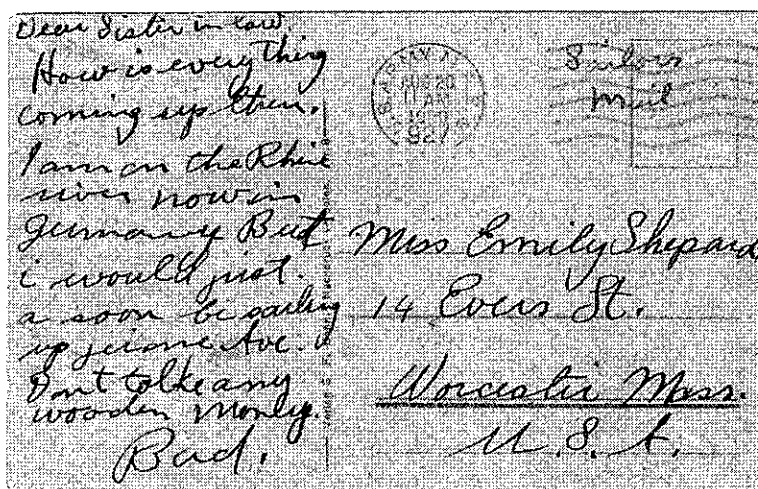 Dear Sister in law
How is everything
coming up then.
I am on the Rhine
river now in
Germany But
i would just
a soon be sailing
up Ave.
Dont take any
wooden money.
Bud.
U.S. ARMY M.
AUG 20
11 AM
927
Sailors
Mail
Miss Emily Shepard
14 Evers St.
Worcester Mass.
U. S. A.